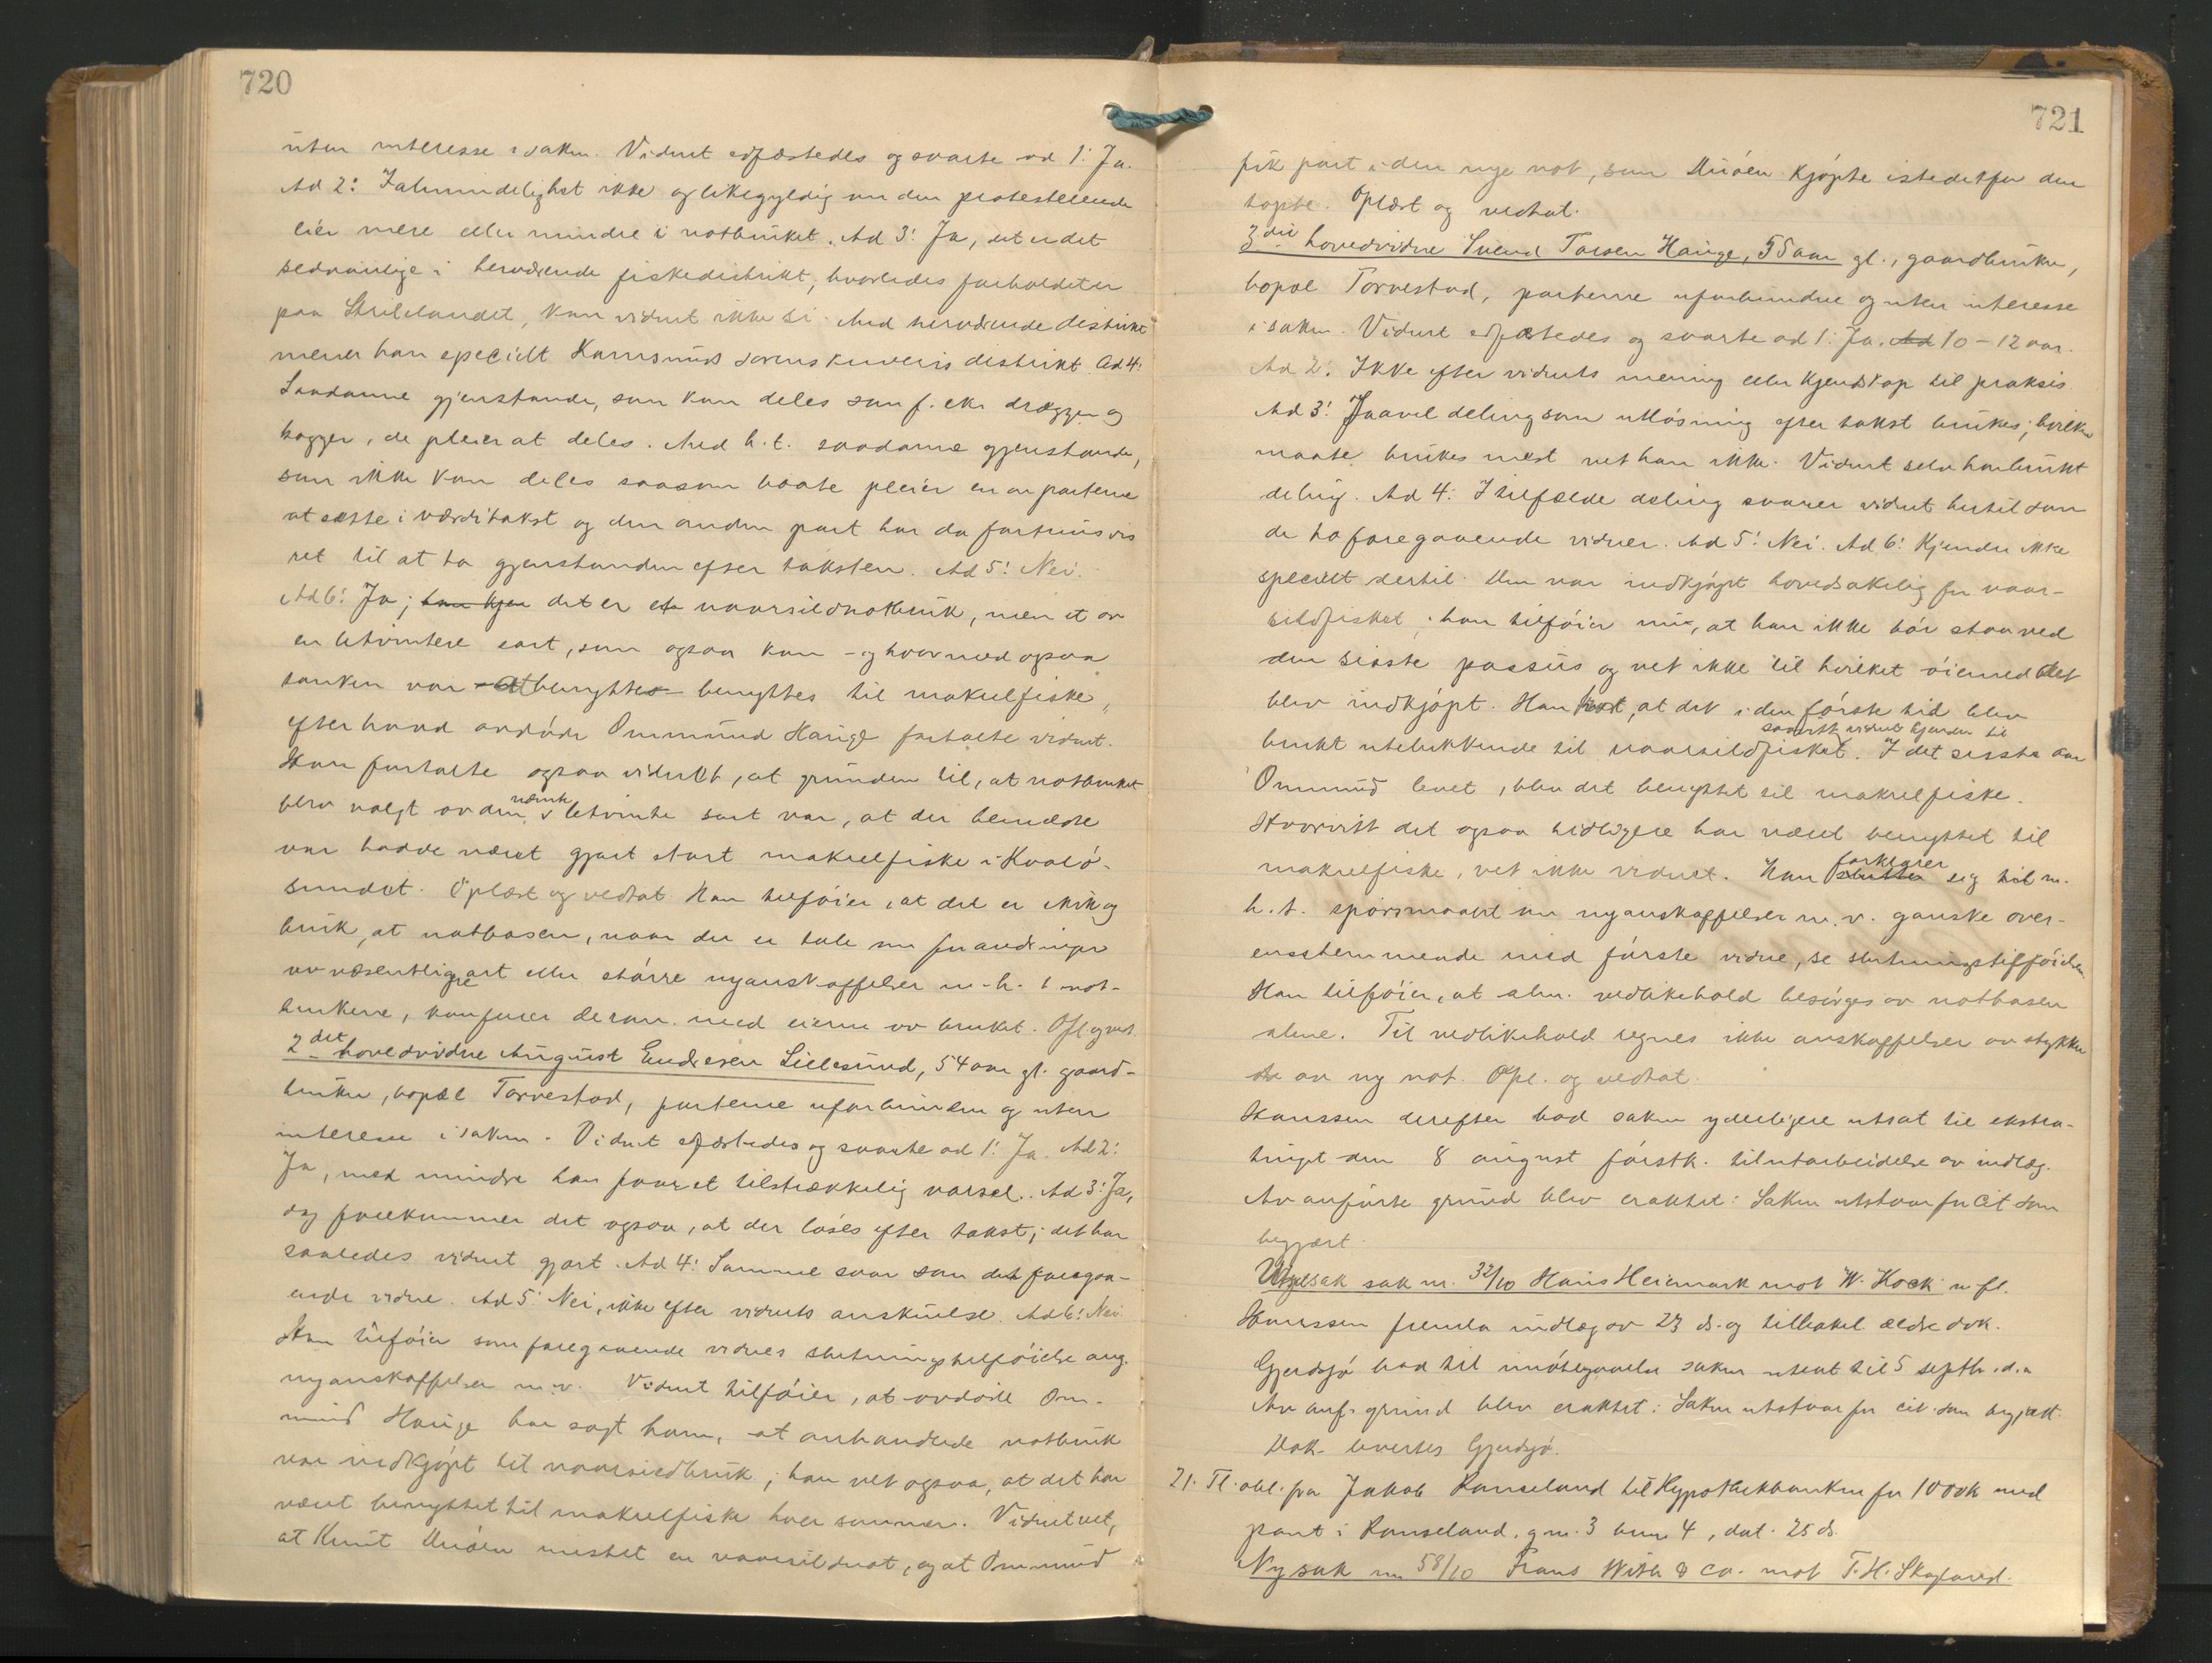 720
uten interesse i saken. Vidnet edfæstedes og svarte ad 1: Ja.
Ad 2: I almindelighet ikke og likegyldig om den protesterende
eier mere eller mindre i notbruket. Ad 3: Ja, det er det
sedvanlige i herværende fiskedistrikt, hvorledes forholdet er
paa Strilelandet, kan vidnet ikke si. Med herværende distrikt
mener han specielt Karmsunds sorenskriveris distrikt. Ad 4:
Saadanne gjenstande, som kan deles som f. eks. drægger og
kagger, de pleier at deles. Med h.t. saadanne gjenstande,
som ikke kan deles saasom baate pleier en av parterne
at sætte i værditakst og den anden part har da fortrinsvis
ret til at ta gjenstanden efter taksten. Ad 5: Nei.
Ad 6: Ja; han kjen det er et vaarsildnotbruk, men et av
en letvintere sort, som ogsaa kan - og hvormed ogsaa
tanken var at benyttes benyttes til makrelfiske,
efter hvad avdøde Ommund Hauge fortalte vidnet.
Han fortalte ogsaa vidnet, at grunden til, at notbruket
blev valgt av den nævnte letvinte sort var, at der beneldte
var hadde været gjort stort makrelfiske i Kvalø-
sundet. Oplæst og vedtat. Han tilføier, at det er skik og
bruk, at notbasen, naar der er tale om forandringer
av væsentligere art eller større nyanskaffelser m.h.t. not-
brukene, konfererer derom med eierne av bruket. Opl og vedt.
2det hovedvidne August Endresen Lillesund, 54 aar gl. gaard-
bruker, bopæl Torvestad, parterne uforbunden og uten
interesse i saken. Vidnet edfæstedes og svarte ad 1: Ja. Ad 2:
Ja, med mindre han faar et tilstrækkelig varsel. Ad 3: Ja,
dog forekommer det ogsaa, at der løses efter takst; det har
saaledes vidnet gjort. Ad 4: Samme svar som det foregaa-
ende vidne. Ad 5: Nei, ikke efter vidnets anskuelse. Ad 6: Nei
Han tilføier som foregaaende vidnes slutningstilføielse ang.
nyanskaffelser m.v. Vidnet tilføier, at avdøde Om-
mund Hauge har sagt ham, at omhandlede notbruk
var indkjøpt til vaarsildbruk; han vet ogsaa, at det har
været benyttet til makrelfiske hver sommer. Vidnet vet,
at Knut Miøen mistet en vaarsildnot, og at Ommund
721
fik part i den nye not, som Miøen kjøpte istedetfor den
tapte. Oplæst og vedtat.
3die hovedvidne Svend Torsen Hauge, 55 aar gl., gaardbruker,
bopæl Torvestad, parterne uforbunden og uten interesse
i saken. Vidnet edfæstedes og svarte ad 1: Ja. Ad 10-12 aar.
Ad 2: Ikke efter vidnets mening eller kjendskap til praksis.
Ad 3: Saavel deling som utløsning efter takst brukes; hvilken
maate brukes mest vet han ikke. Vidnet selv har brukt
deling. Ad 4: I tilfælde deling svarer vidnet hertil som
de to foregaaende vidner. Ad 5: Nei. Ad 6: Kjender ikke
specielt dertil. Den var indkjøpt hovedsakelig for vaar-
sildfisket; han tilføier nu, at han ikke tør staa ved
den sidste passus og vet ikke til hvilket øiemed det
blev indkjøpt. Han vet, at det i den første tid blev
saavitt vidnet kjender til
brukt utelukkende til vaarsildfisket. I det sidste aar
Ommund levet, blev det benyttet til makrelfiske.
Hvorvitt det ogsaa tidligere har været benyttet til
makrelfiske, vet ikke vidnet. Han slutter forklarer sig til m.
h.t. spørsmaalet om nyanskaffelser m.v. ganske over-
ensstemmende med første vidne, se slutningstilføielsen.
Han tilføier, at alm. vedlikehold besørges av notbasen
alene. Til vedlikehold regnes ikke anskaffelser av stykker
av ny not. Opl. og vedtat.
Hanssen derefter bad saken yderligere utsat til ekstra-
tinget den 8 august førstk. til utarbeidelse av indlæg.
Av anførte grund blev eraktet: Saken utstaar for cit som
begjært.
sak nr. 32/10 Hans Heiemark mot W. Kock m fl.
Hanssen fremla indlæg av 23 ds. og tilbakel. ældre dok.
Gjerdsjø bad til imøtegaaelse saken utsat til 5 septbr. d.a
Av anf. grund blev eraktet: Saken utstaar for cit. som begjært.
Dok. levertes Gjerdsjø.
21. Tl. obl. fra Jakob Ramseland til Hypothekbanken for 1000k med
pant i Ramseland, gnr. 3 bnr. 4, dat. 25 ds.
Ny sak nr 58/10 Frans With & Co. mot T. H. Skogland.